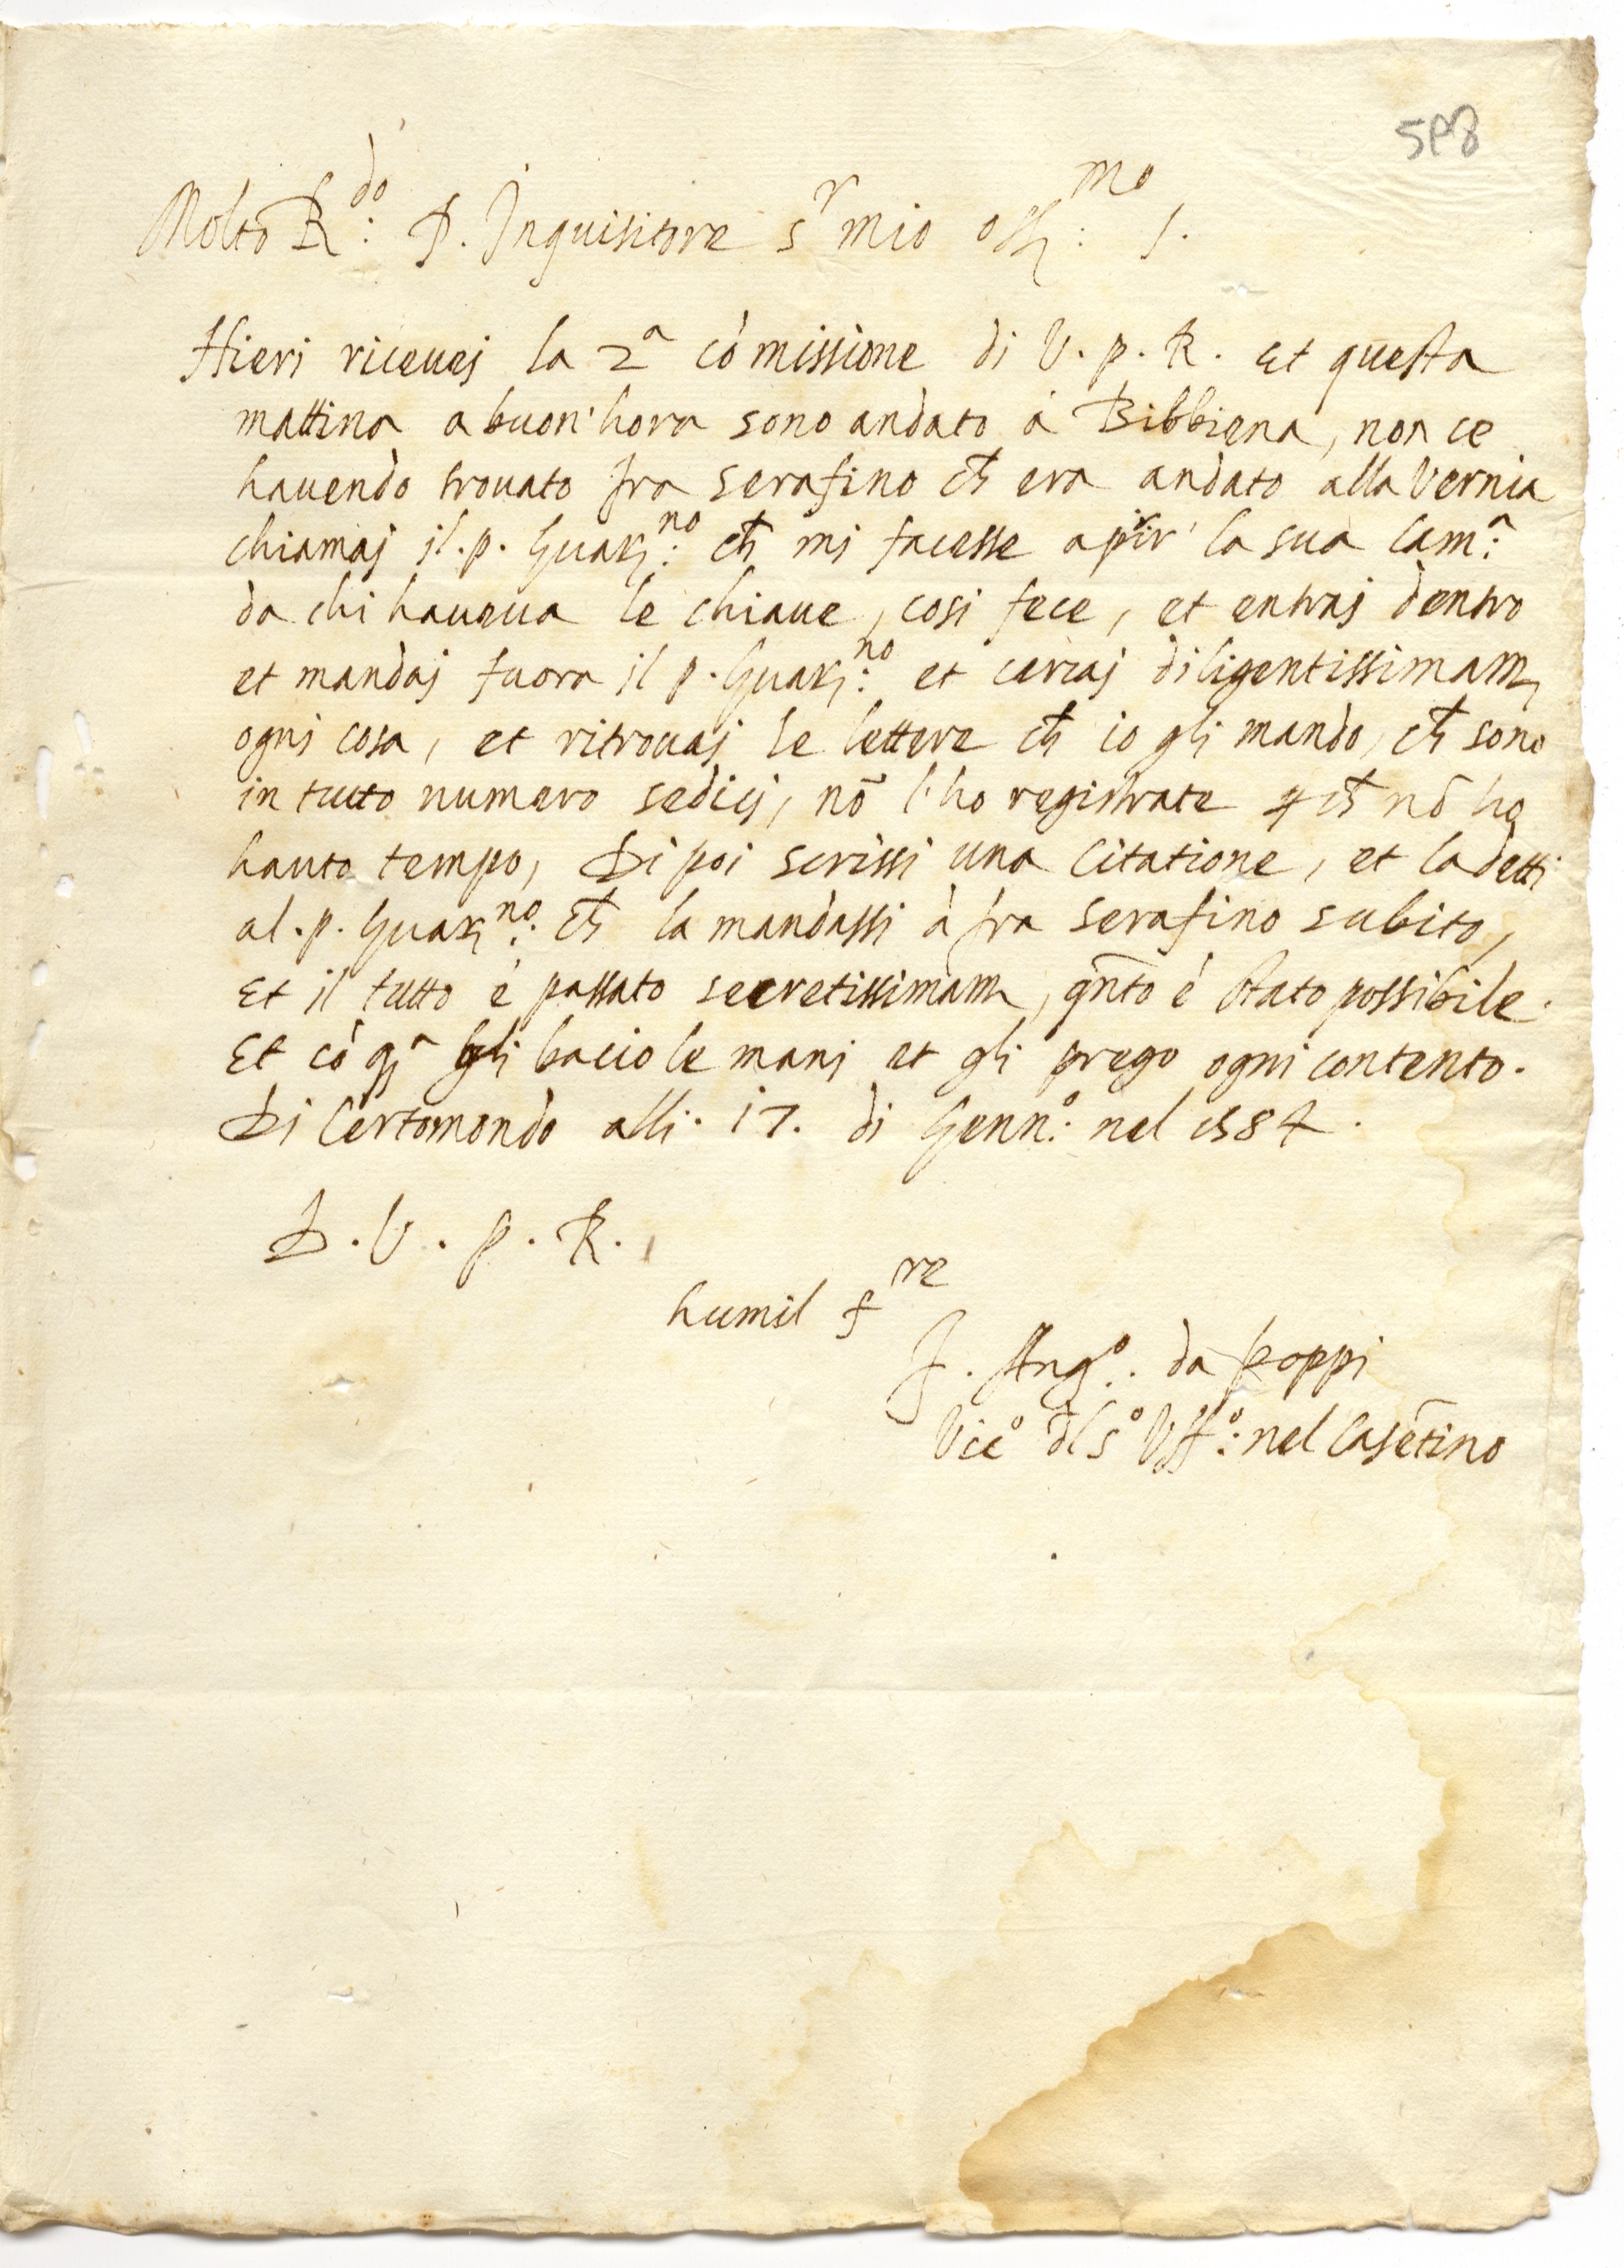 598
Molto R.do P. Inquisitore Sr mio oss.mo S.
Hieri riceuej la 2a cómissione di V. p. R. et questa
mattina a buon'hora sono andato á Bibbiena, non ce
hauendo trouato fra serafino ch̄ era andato alla Vernia
chiamaj il. p. Guard.no ch̄ mi facesse aprir' la sua cam.a
da chi haueua le chiaue, cosi fece, et entraj dentro
et mandaj fuora il p. Guard.no et cercaj diligentissimam.
ogni cosa, et ritrouaj le lettere ch̄ io gli mando, ch̄ sono
in tutto numero sedici, nō l'ho registrate ꝑch̄ nō ho
hauto tempo, Di poi scrissi una citatione, et la detti
al. p. Guard.no ch̄ la mandassi à fra serafino subito,
Et il tutto è passato secretissimam., qn̄to é stato possibile.
Et cò qsa gli bacio le mani et gli prego ogni contento.
Di Certomondo alli. 17. di Genn.o nel 1584.
D. V. p. R.
humil fre
F. Ang.o da Poppi
Vic.o dl s.o Uff.o nel Casētino